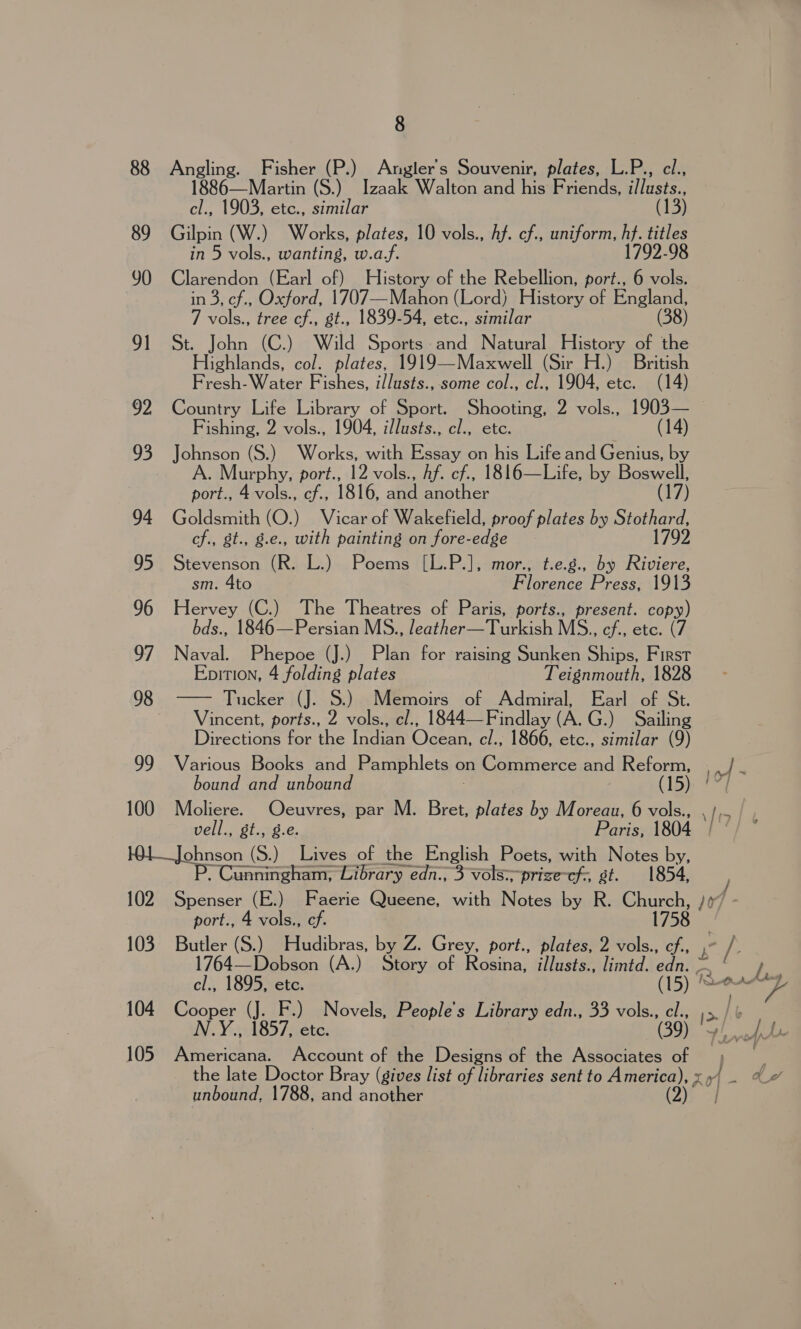 8
88 Angling. Fisher (P.) Angler's Souvenir, plates, L.P., cl.,
1886—Martin (S.) Izaak Walton and his Friends, illusts.,
cl., 1903, etc., similar (13)
89 Gilpin (W.) Works, plates, 10 vols., hf. cf., uniform, hf. titles
in 5 vols., wanting, w.a.f. 1792-98
90 Clarendon (Earl of) History of the Rebellion, port., 6 vols.
in 3, cf., Oxford, 1707—Mahon (Lord) History of England,
7 vols., tree cf., gt., 1839-54, etc., similar (38)
91 St. John (C.) Wild Sports and Natural History of the
Highlands, col. plates, 1919—Maxwell (Sir H.) British
Fresh-Water Fishes, illusts., some col., cl., 1904, etc. (14)
92 Country Life Library of Sport. Shooting, 2 vols., 1903—
Fishing, 2 vols., 1904, illusts., cl., etc. (14)
93 Johnson (S.) Works, with Essay on his Life and Genius, by
A. Murphy, port., 12 vols., hf. cf., 1816—Life, by Boswell,
port., 4 vols., cf., 1816, and another (17)
94 Goldsmith (O.) Vicar of Wakefield, proof plates by Stothard,
cf., gt., g.e., with painting on fore-edge 1792
95 Stevenson (R. L.) Poems [L.P.], mor., t.e.g., by Riviere,
sm. 4to Florence Press, 1913
96 Hervey (C.) The Theatres of Paris, ports., present. copy)
bds., 1846—Persian MS., leather—Turkish MS., cf., etc. (7
97 Naval. Phepoe (J.) Plan for raising Sunken Ships, First
Edition, 4 folding plates Teignmouth, 1828
98 —— Tucker (J. S.) Memoirs of Admiral, Earl of St.
Vincent, ports., 2 vols., cl., 1844—Findlay (A. G.) Sailing
Directions for the Indian Ocean, cl., 1866, etc., similar (9)
99 Various Books and Pamphlets on Commerce and Reform,
bound and unbound (15)
100 Moliere. Oeuvres, par M. Bret, plates by Moreau, 6 vols.,
vell., gt., g.e. Paris, 1804
101 Johnson (S.) Lives of the English Poets, with Notes by,
P. Cunningham, Library edn., 3 vols., prize cf., gt. 1854,
102 Spenser (E.) Faerie Queene, with Notes by R. Church,
port., 4 vols., cf. 1758
103 Butler (S.) Hudibras, by Z. Grey, port., plates, 2 vols., cf.,
1764—Dobson (A.) Story of Rosina, illusts., limtd. edn.
cl., 1895, etc. (15)
104 Cooper (J. F.) Novels, People's Library edn., 33 vols., cl.,
N.Y., 1857, etc. (39)
105 Americana. Account of the Designs of the Associates of
the late Doctor Bray (gives list of libraries sent to America),
unbound, 1788, and another (2)